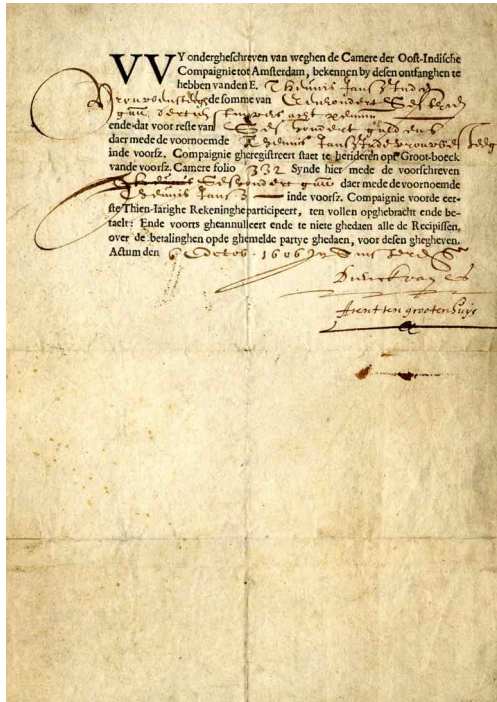 VVY ondergheschreven van weghen de Camere der Oost-Indische
Compaignie tot Amsterdam, bekennen by desen ontfanghen te
hebben vanden E. Theunis Jansz
de somme van
gul. dertien stuyvers acht penning
ende dat voor reste van Ses hondert guldens
daer mede de voornoemde Theunis Jansz
inde voorsz. Compaignie gheregistreert staet te herideren opt Groot-boeck
vande voorsz. Camere folio 332 Synde hier mede de voorschreven
Seshondert gul daer mede de voornoemde
Theunis Jansz inde voorsz. Compaignie voorde eer-
ste Thien-Iarighe Rekeninghe participeert, ten vollen opghebracht ende be-
taelt: Ende voorts gheannulleert ende te niete ghedaen alle de Recipissen,
over de betalinghen opde ghemelde partye ghedaen, voor desen ghegheven.
Actum den 1606
Arent ten grootenhuys